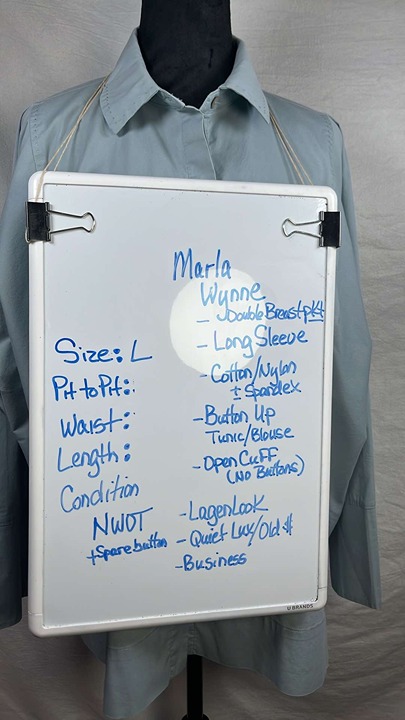 Marla
Wynne
- Double Breast pkt
Size: L
- Long Sleeve
Pit to Pit:
- Cotton/Nylon
± Spandex
Waist:
- Button Up
Tunic/Blouse
Length:
- Open Cuff
(No Buttons)
Condition
NWOT
- Lagenlook
+Spare button
- Quiet Lux/Old $
- Business
U BRANDS